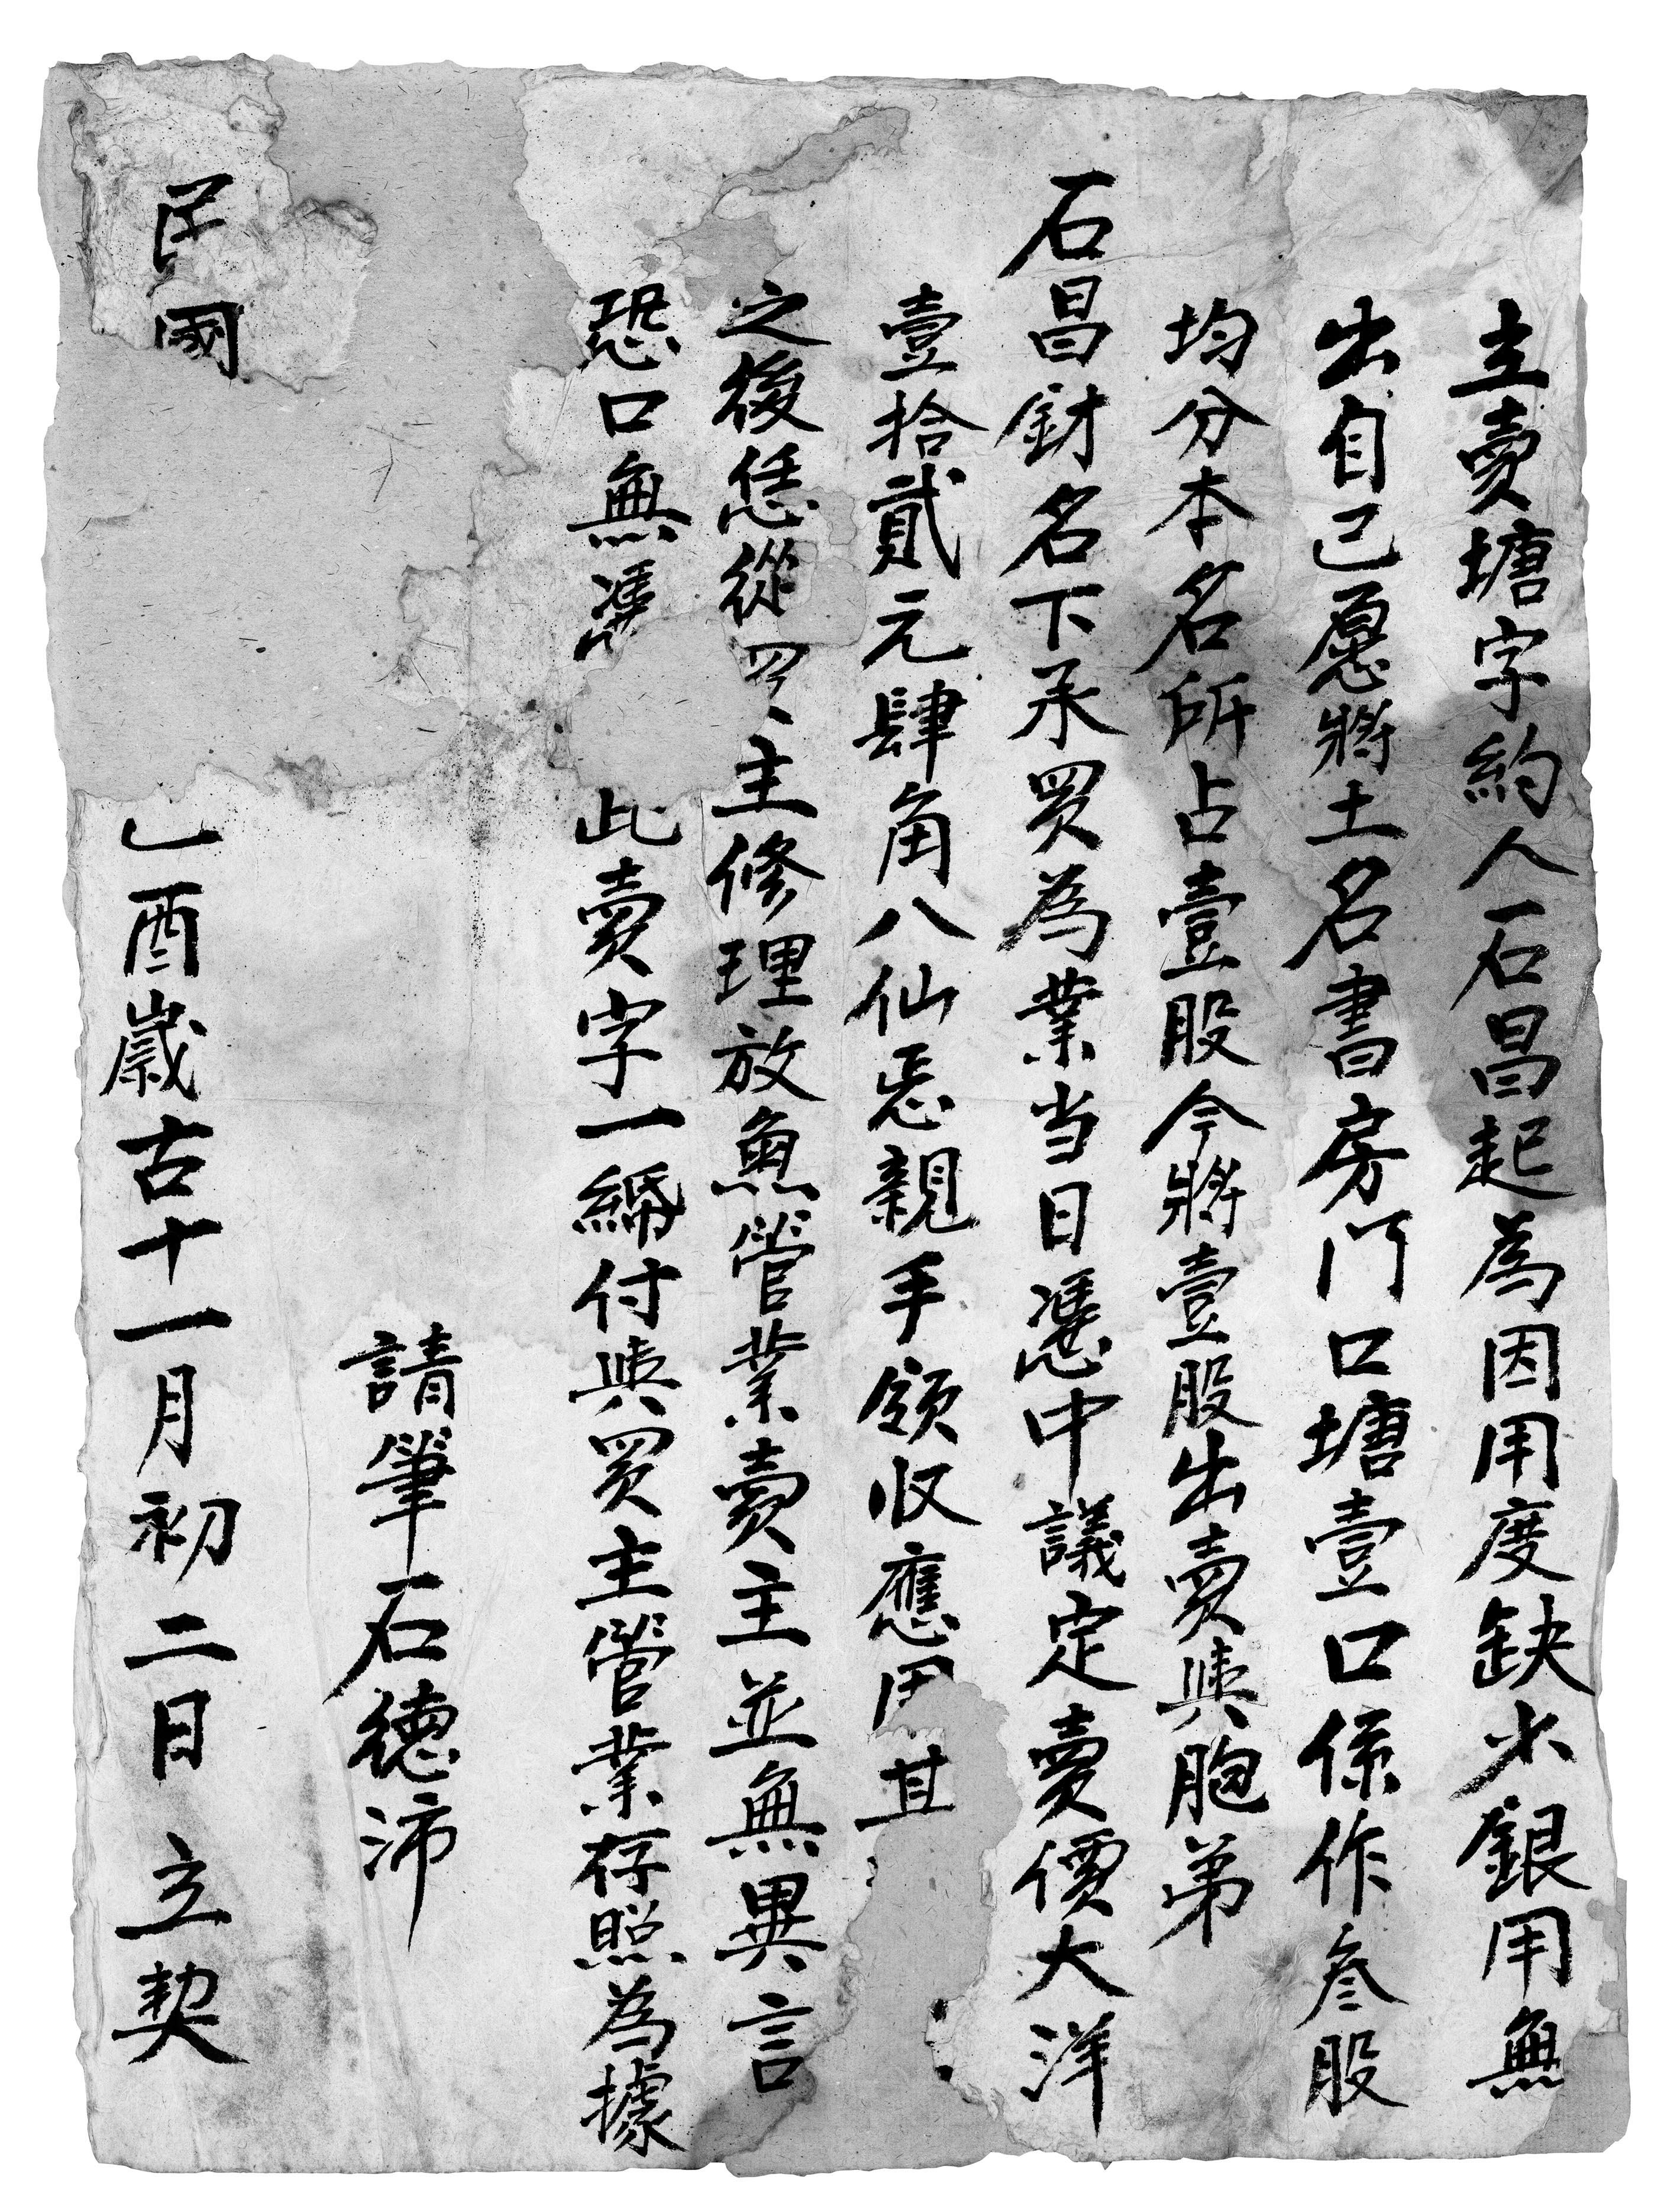 立賣塘字約人石昌起為因用度缺少銀用無
出自己愿將土名書房門口塘壹口係作叁股
均分本名所占壹股今將壹股出賣與胞弟
石昌財名下承買為業当日憑中議定賣價大洋
壹拾貳元肆角八仙悉親手領收應用其
之後恁從買主修理放魚管業賣主並無異言
恐口無憑 此賣字一紙付與買主管業存照為據
請筆石德沛
民國 乙酉歲古十一月初二日 立契